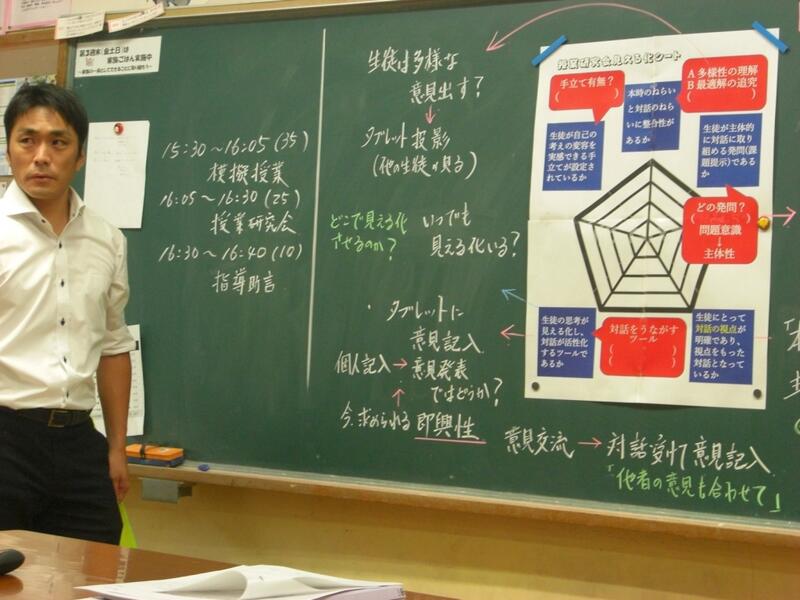 第3週末(金土日)は
家族ごはん実施中
15:30〜16:05(35)
模擬授業
16:05〜16:30(25)
授業研究会
16:30〜16:40(10)
指導助言
生徒は多様な
意見出す?
↓
タブレット投影
(他の生徒が見る)
どこで見える化
させるのか?
いつでも
見える化いる?
・タブレットに
意見記入
個人記入→意見発表
ではどうか?
↑
今、求められる即興性
意見交流→対話受けて意見記入
「他者の意見も合わせて」
授業研究会見える化シート
手立て有無?
( )
本時のねらい
と対話のねら
いに整合性が
あるか
A多様性の理解
B最適解の追究
( )
生徒が自己の
考えの変容を
実感できる手
立てが設定さ
れているか
生徒が主体的
に対話に取り
組める発問(課
題提示)である
か
どの発問?
( )
問題意識
↓
主体性
生徒の思考が
見える化し、
対話が活性化
するツールで
あるか
対話をうながす
ツール
( )
( )
生徒にとって
対話の視点が
明確であり、
視点をもった
対話となって
いるか